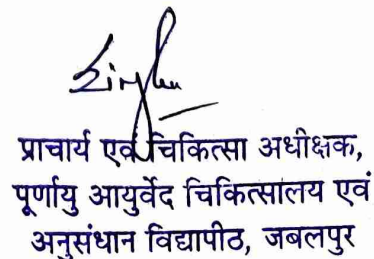 प्राचार्य एवं चिकित्सा अधीक्षक,
पूर्णायु आयुर्वेद चिकित्सालय एवं
अनुसंधान विद्यापीठ, जबलपुर